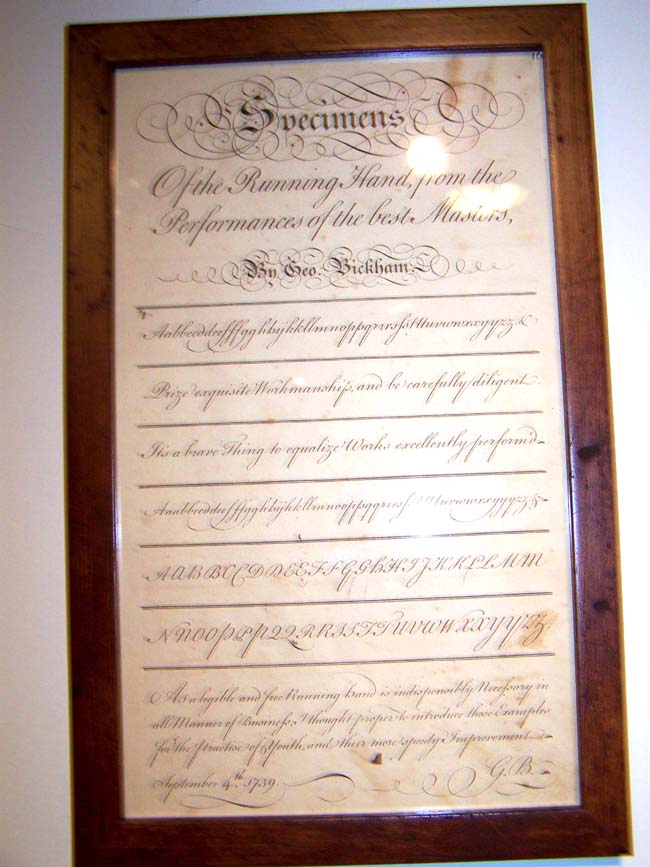 16
Specimens
Of the Running Hand, from the
Performances of the best Masters,
By Geo. Bickham.
Prize exquisite Workmanship, and be carefully diligent.
It's a brave Thing to equalize Works excellently perform'd
A A B B C C D D E E F F G G H H I J K K L L M M
N N O O P P P Q Q R R S S T T U V W W X X Y Y Z Z
As a legible and free Running Hand is indispensably Necessary in
all Manner of Business, I thought proper to introduce these Examples
for the Practise of Youth, and their more speedy Improvement
G.B.
September 4th. 1739.